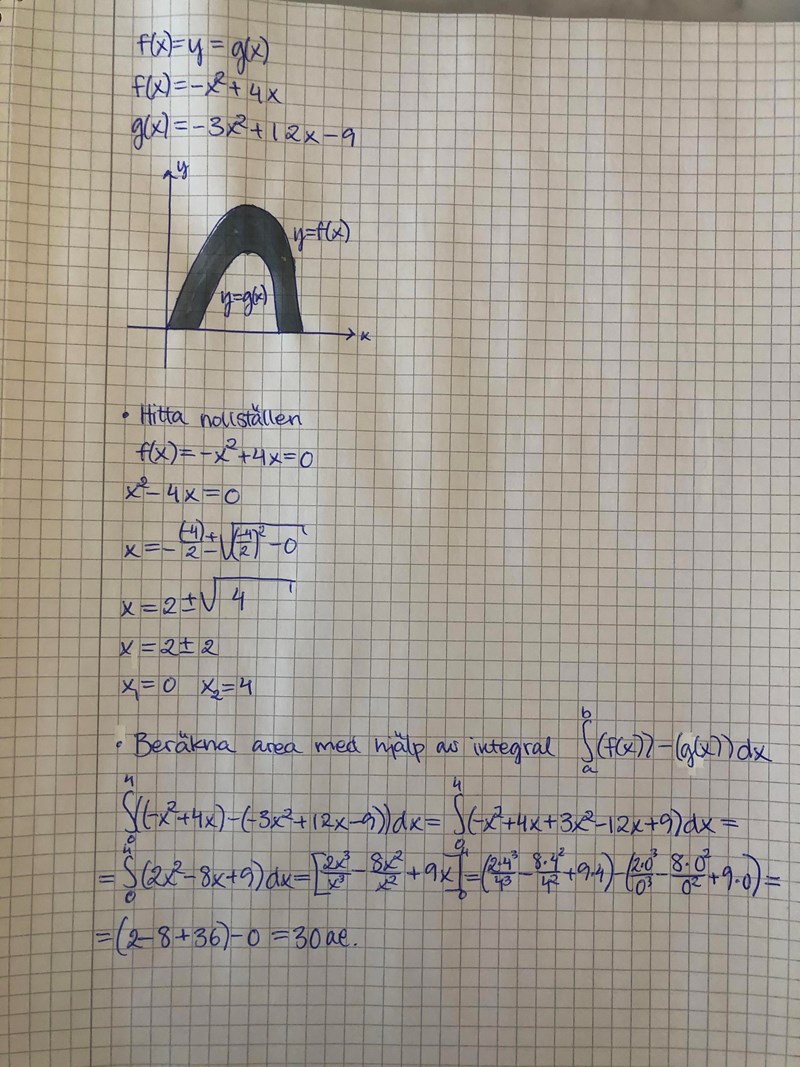 f(x)=y=g(x)
f(x)=-x²+4x
g(x)=-3x²+12x-9
y
y=f(x)
y=g(x)
x
• Hitta nollställen
f(x)=-x²+4x=0
x²-4x=0
x=-(-4)/2±√((-4/2)²-0)
x=2±√4
x=2±2
x₁=0 x₂=4
• Beräkna area med hjälp av integral ∫ₐᵇ(f(x))-(g(x))dx
∫₀⁴((-x²+4x)-(-3x²+12x-9))dx=∫₀⁴(-x²+4x+3x²-12x+9)dx=
=∫₀⁴(2x²-8x+9)dx=[2x³/x³-8x²/x²+9x]₀⁴=(2·4³/4³-8·4²/4²+9·4)-(2·0³/0³-8·0²/0²+9·0)=
=(2-8+36)-0=30ae.